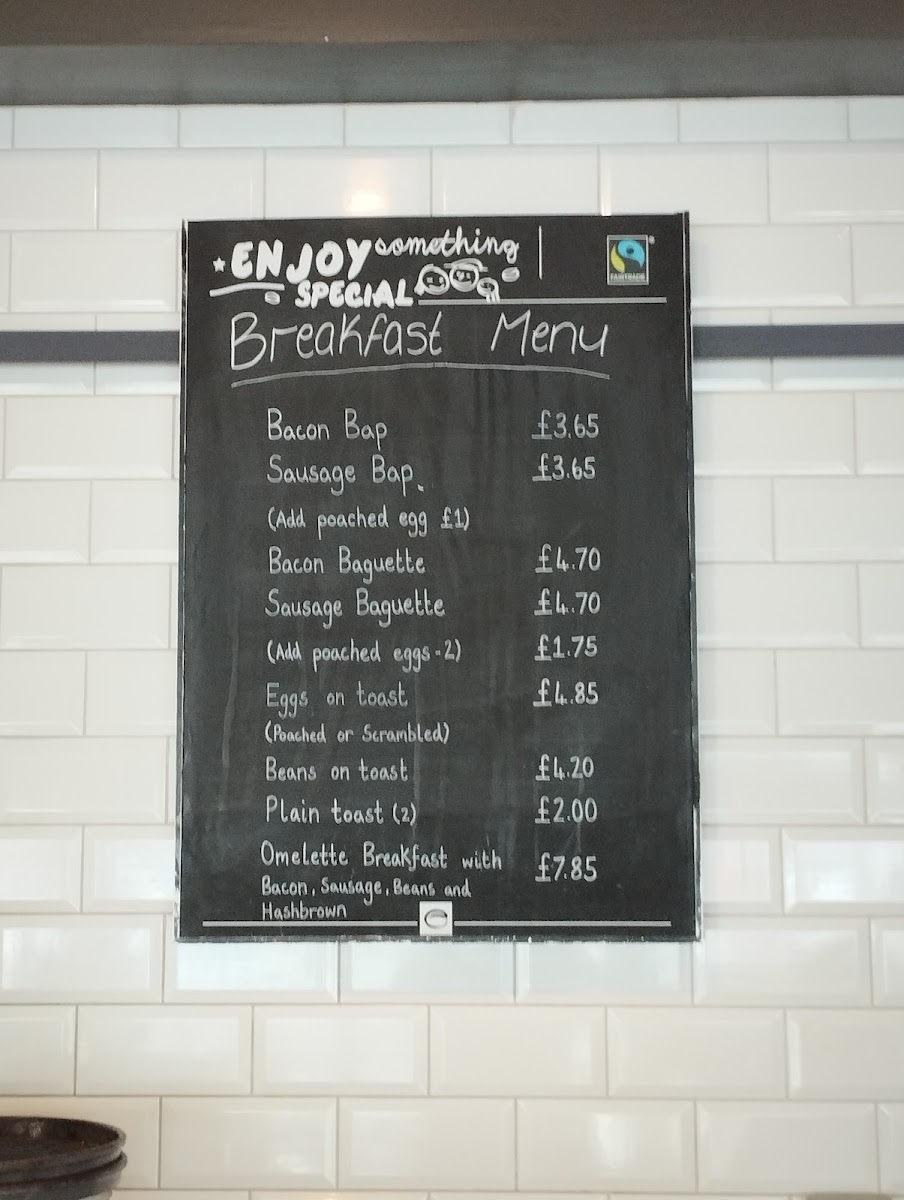 ENJOY something
SPECIAL
FAIRTRADE
Breakfast Menu
Bacon Bap £3.65
Sausage Bap. £3.65
(Add poached egg £1)
Bacon Baguette £4.70
Sausage Baguette £4.70
(Add poached eggs-2) £1.75
Eggs on toast £4.85
(Poached or Scrambled)
Beans on toast £4.20
Plain toast (2) £2.00
Omelette Breakfast with £7.85
Bacon, Sausage, Beans and
Hashbrown